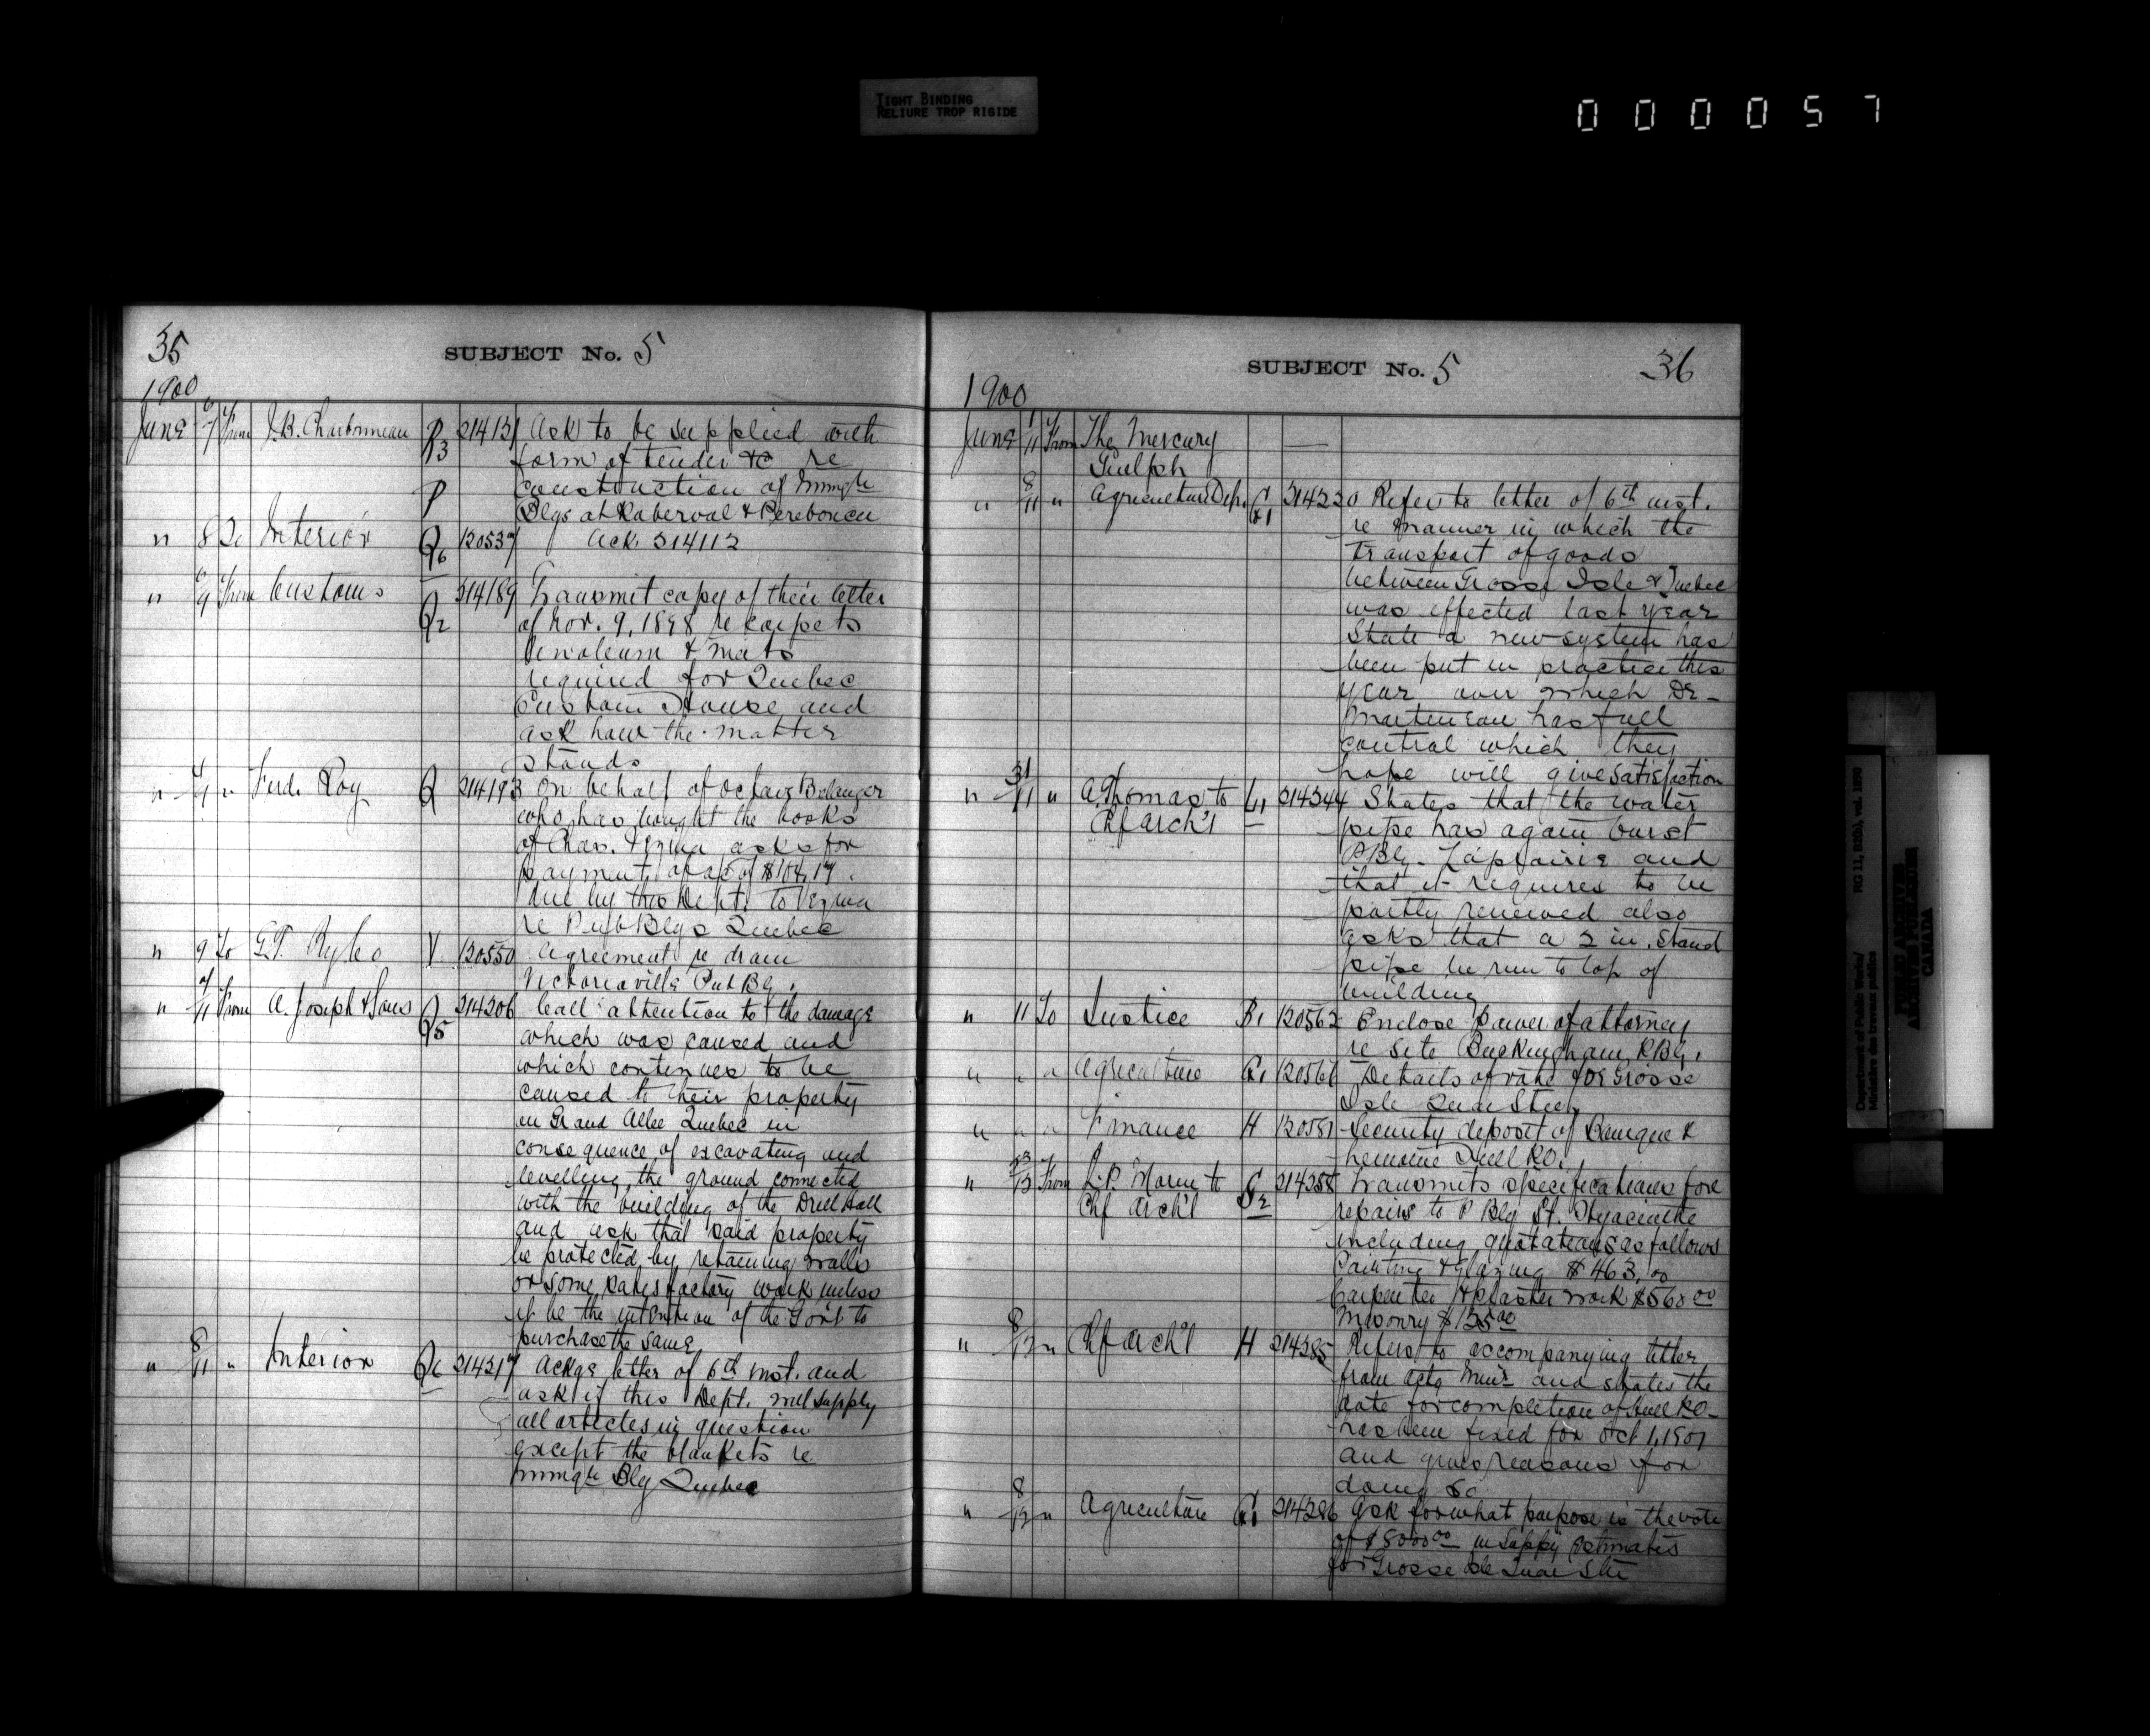 TIGHT BINDING
RELIURE TROP RIGIDE
000057
35
SUBJECT No. 5
1900
June 6/7 From J.B. Charbonneau R3 214131 Ask to be supplied with
form of tender &c re
construction of Immigtn
P Blgs at Roberval & Peribonca
" 8 To Interior Q6 120537 Ack. 214112
" 6/9 From Customs Q2 214189 Transmit copy of their letter
of Nov. 9, 1898 re carpets
linoleum & mats
required for Quebec
Custom House and
ask how the matter
stands
" " Ferd. Roy Q 214193 On behalf of Octave Belanger
who has bought the books
of Chas. Vezina asks for
payment of a/c of $104.17
due by this Dept. to Vezina
re Pub Blgs Quebec
" 9 To G.T. Ryleo V 120550 Agreement re drain
Victoriaville Pub Bg.
" /11 From A. Joseph & Sons Q5 214206 Call attention to the damage
which was caused and
which continues to be
caused to their property
on Grand Allee Quebec in
consequence of excavating and
levelling the ground connected
with the building of the Drill Hall
and ask that said property
be protected by retaining walls
or some satisfactory work unless
it be the intention of the Gov't to
purchase the same
" 8/11 " Interior Q6 214217 Ackgs letter of 6th inst. and
ask if this Dept. will supply
all articles in question
except the blankets re
Immigtn Blg Quebec
SUBJECT No. 5 36
1900
June 1/11 From The Mercury —
Guelph
" 8/11 " Agriculture Dep. G1 214220 Refers to letter of 6th inst.
re manner in which the
transport of goods
between Grosse Isle & Quebec
was effected last year
State a new system has
been put in practice this
year over which Dr-
Martineau has full
control which they
hope will give satisfaction
" 31/11 " A. Thomas to L1 214244 States that the water
Chf Arch't pipe has again burst
P Blg. Laprairie and
that it requires to be
partly renewed also
asks that a 2 in. stand
pipe be run to top of
building
" 11 To Justice B1 120562 Enclose power of attorney
re site Buckingham P.Blg.
" " " Agriculture G1 120566 Details of vote for Grosse
Isle Quar Stn
" " " Finance H 120551 Security deposit of Bourque &
Hull P.O.
" /12 From L.P. Morin to S2 214258 Transmits specifications for
Chf Arch't repairs to P Blg St. Hyacinthe
including quotations as follows
Painting & glazing $463.00
Carpenter & plaster work $568 00
Masonry $135 00
" 8/12 " Chf Arch't H 214285 Refers to accompanying letter
from actg Minr and states the
date for completion of Hull P.O.
has been fixed for Oct 1, 1901
and gives reasons for
doing so
" 8/12 " Agriculture G1 214286 Ask for what purpose is the vote
of $5000 00 in Suppy Estimates
for Grosse Isle Quar Stn
Department of Public Works/
Ministère des travaux publics
RG 11, B2(b), vol. 1890
PUBLIC ARCHIVES
ARCHIVES PUBLIQUES
CANADA